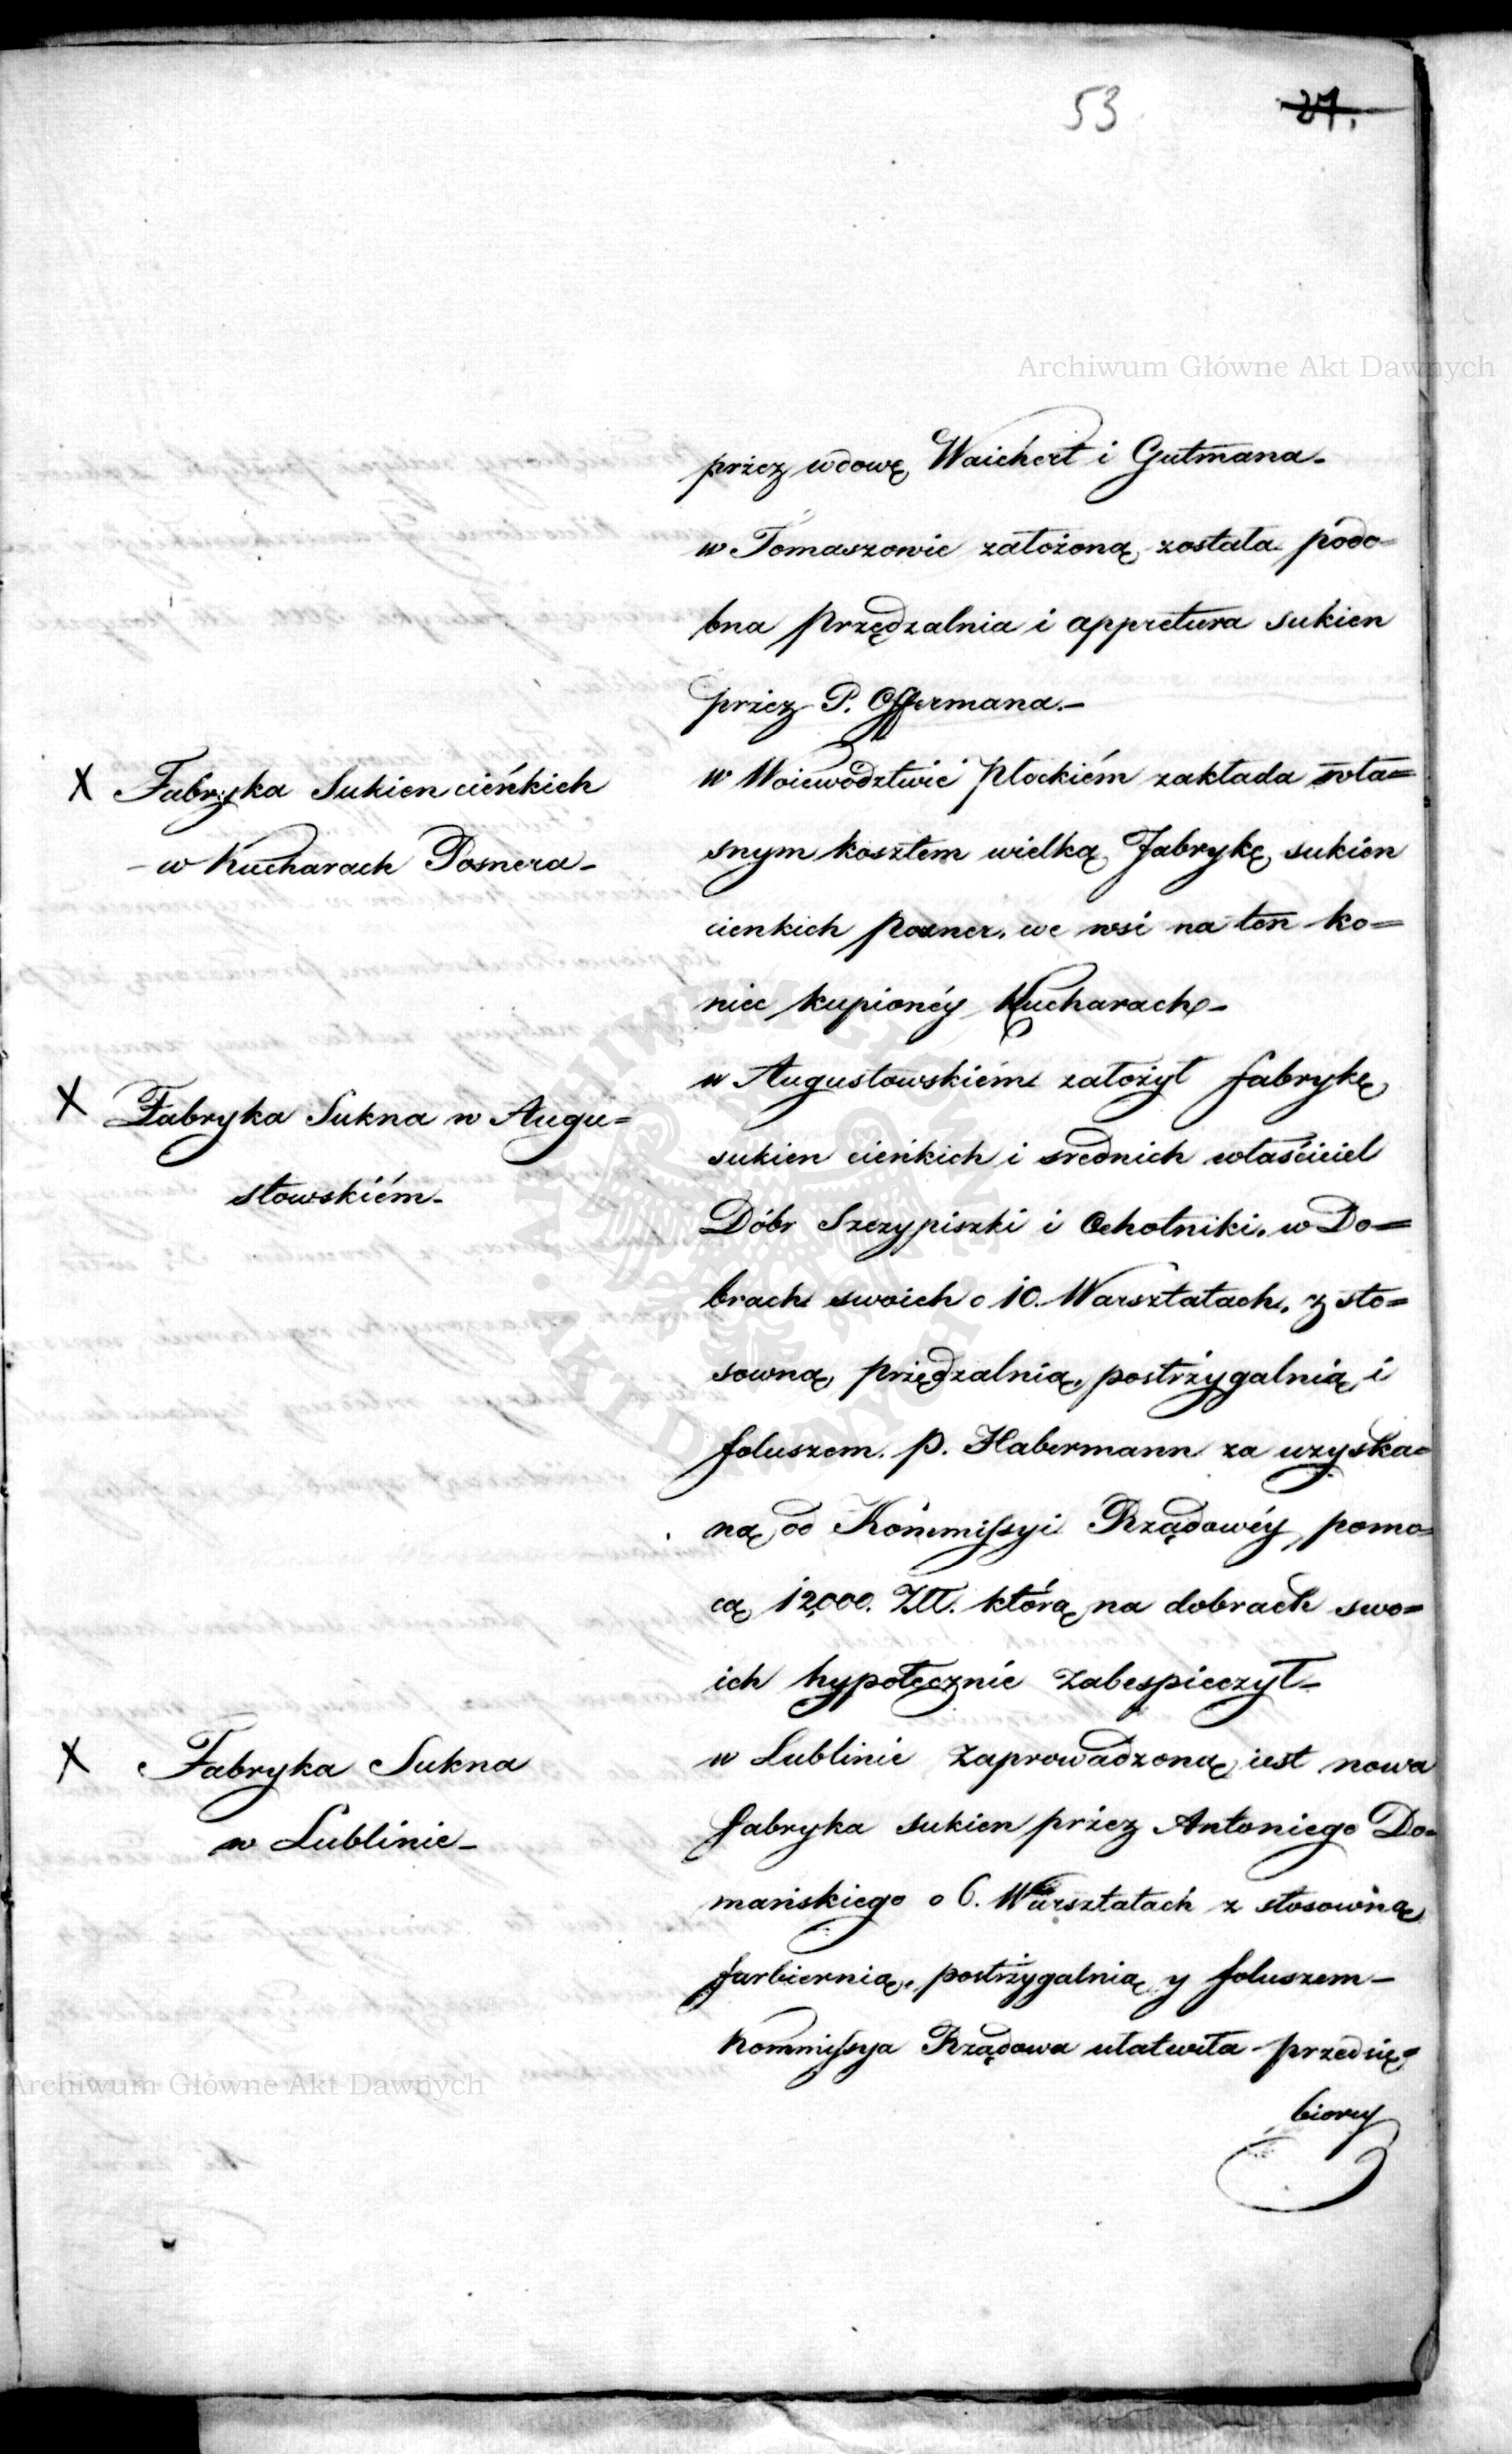 53 27.
Archiwum Główne Akt Dawnych
przez wdowę Waichert i Gutmana.
w Tomaszowie założoną została podo=
bna przędzalnia i appretura sukien
przez P. Offermana.—
X Fabryka Sukien cieńkich
– w Kucharach Posnera –
w Woiewództwie Płockiém zakłada wła=
snym kosztem wielką Fabrykę sukien
cienkich Pozner, we wsi na ten ko=
niec kupionéy Kucharach –
X Fabryka Sukna w Augu=
stowskiém –
w Augustowskiém założył fabrykę
sukien cieńkich i srednich właściciel
Dóbr Szczypiszki i Ochotniki, w Do=
brach swoich o 10. Warsztatach, z sto=
sowną przędzalnią, postrzygalnią i
foluszem. P. Habermann za uzyska=
ną od Kommissyi Rządowéy pomo=
cą 12,000. Złł. którą na dobrach swo=
ich hypotecznie zabespieczył –
X Fabryka Sukna
w Lublinie –
w Lublinie zaprowadzoną iest nowa
fabryka sukien przez Antoniego Do=
mańskiego o 6. Warsztatach z stosowną
farbiernią, postrzygalnią y foluszem –
Kommissya Rządowa ułatwiła przedsię=
biorcy
Archiwum Główne Akt Dawnych
ARCHIWUM GŁÓWNE AKT DAWNYCH